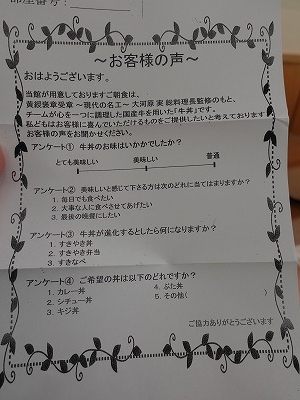 部屋番号：
～お客様の声～
おはようございます。
当館が用意しておりますご朝食は、
黄綬褒章受章 ～現代の名工～ 大河原 実 総料理長監修のもと、
チームが心を一つに調理した国産牛を用いた「牛丼」です。
私どもはお客様に喜んでいただけるものをご提供したいと考えております
お客様の声をお聞かせください。
アンケート① 牛丼のお味はいかかでしたか？
とても美味しい 美味しい 普通
アンケート② 美味しいと感じて下さる方は次のどれに当てはまりますか？
1. 毎日でも食べたい
2. 大事な人に食べさせてあげたい
3. 最後の晩餐にしたい
アンケート③ 牛丼が進化するとしたら何になりますか？
1. すきやき丼
2. すきやき弁当
3. すきなべ
アンケート④ ご希望の丼は以下のどれですか？
1. カレー丼 4. ぶた丼
2. シチュー丼 5. その他( )
3. キジ丼
ご協力ありがとうございます